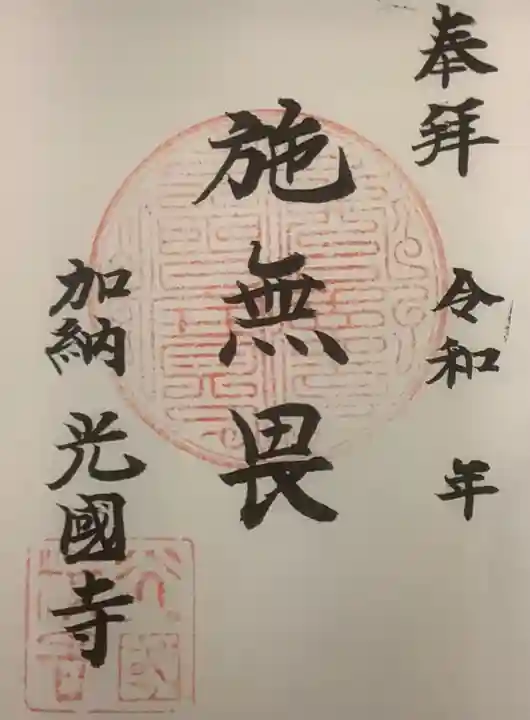 奉拝
令和 年
施無畏
加納
光國寺